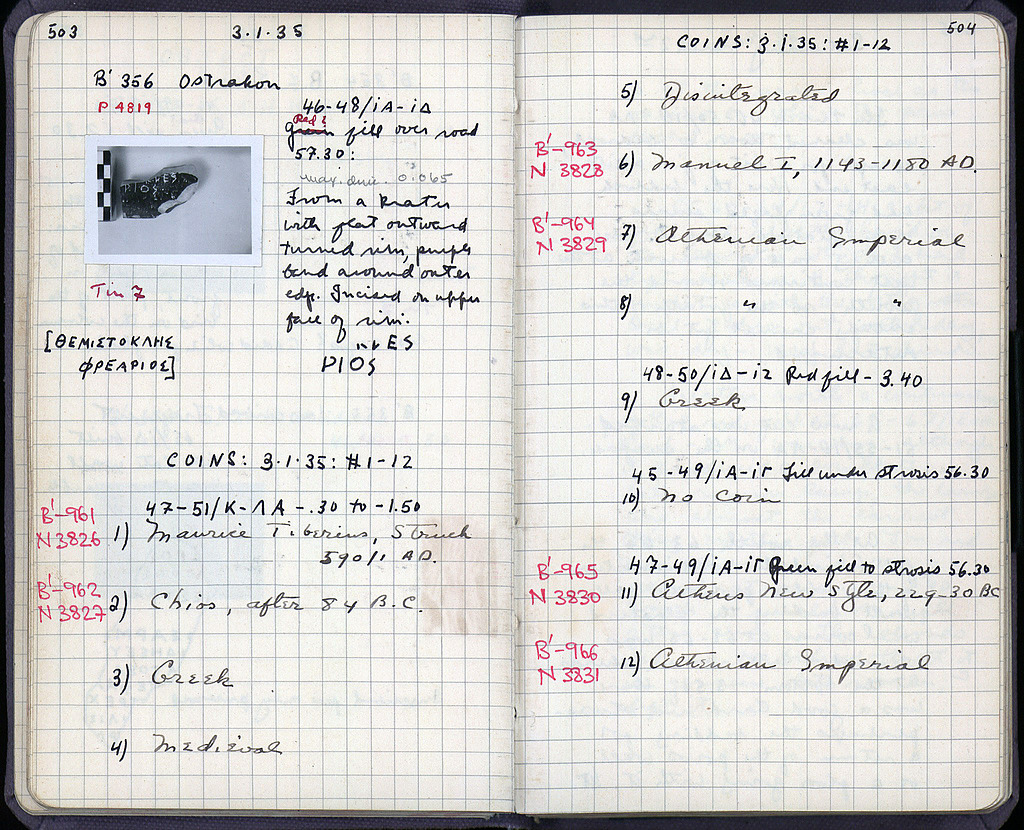 503
3.1.35
B' 356 Ostrakon
P 4819
46-48/ίΑ-ίΔ
Red?
green fill over road
57.30:
max. dim. 0.065
From a krater
with flat outward
turned rim, purple
band around outer
edge. Incised on upper
face of rim.
ΕS
ΡΙΟS
Tin 7
[ΘΕΜΙΣΤΟΚΛΗΣ
ΦΡΕΑΡΙΟΣ]
COINS: 3.1.35: #1-12
47-51/Κ-ΛΑ -.30 to -1.50
B'-961
N 3826
1) Maurice Tiberius, Struck
590/1 AD.
B'-962
N 3827
2) Chios, after 84 B.C.
3) Greek
4) Medieval
504
COINS: 3.1.35: #1-12
5) Disintegrated
B'-963
N 3828
6) Manuel I, 1143-1180 AD.
B'-964
N 3829
7) Athenian Imperial
8) " "
48-50/ίΔ-ίΖ Red fill - 3.40
9) Greek
45-49/ίΑ-ίΓ fill under strosis 56.30
10) No coin
47-49/ίΑ-ίΓ Green fill to strosis 56.30
B'-965
N 3830
11) Athens New Style, 229-30 BC
B'-966
N 3831
12) Athenian Imperial